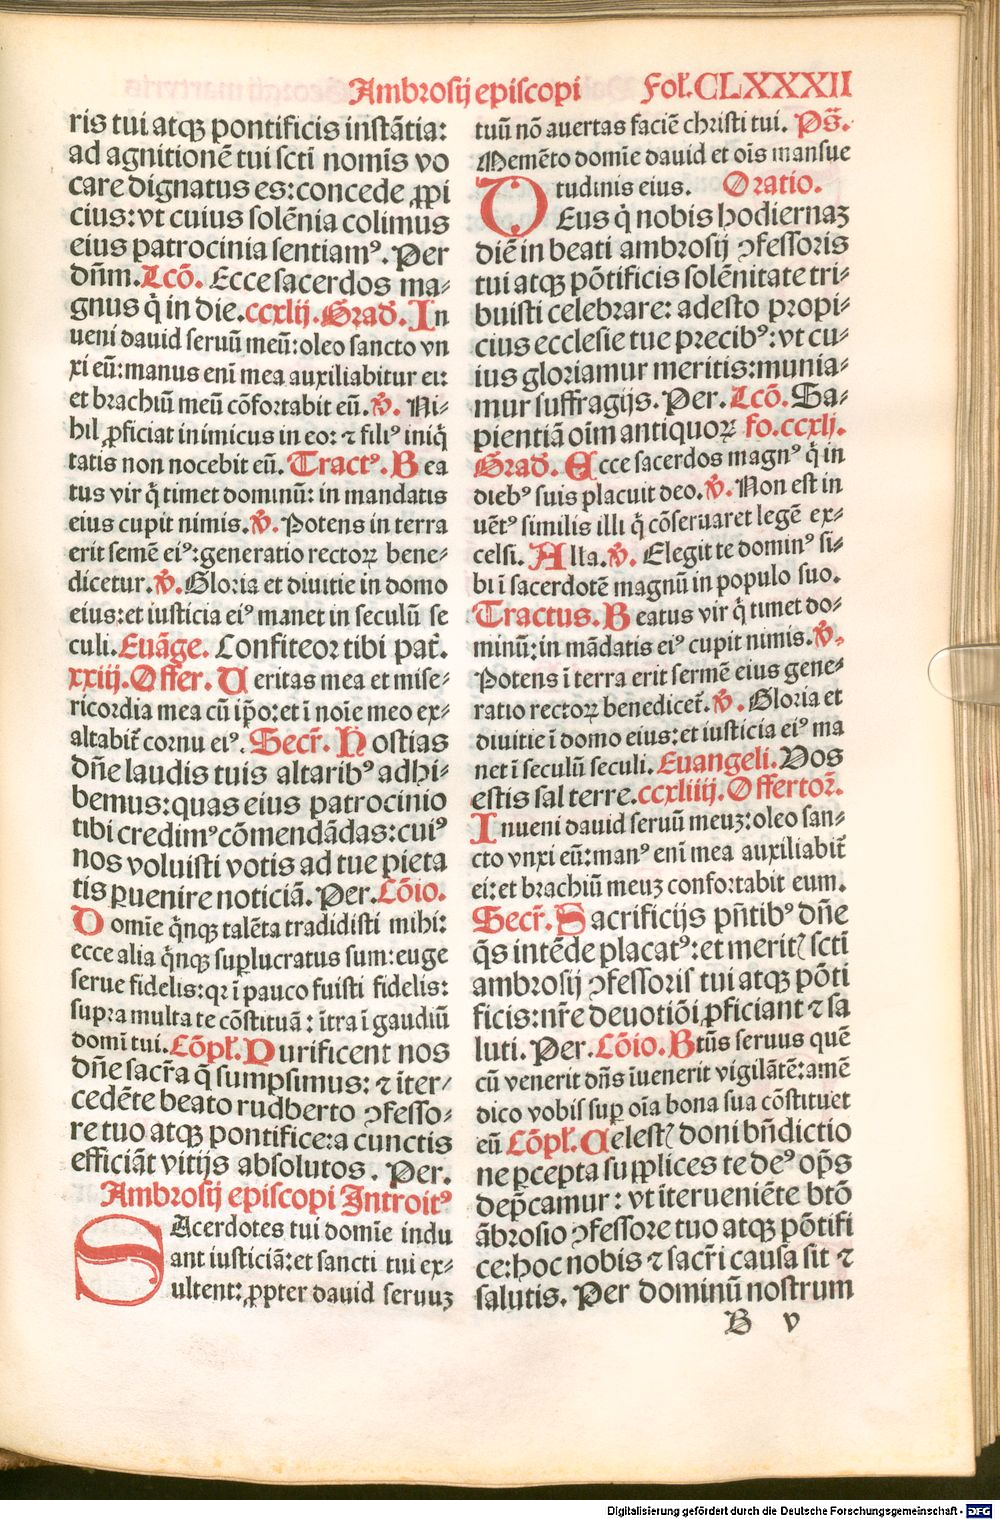 Ambrosij episcopi Fol. CLXXXII
ris tui atqꝫ pontificis instãtia:
ad agnitionẽ tui scti nomis vo
care dignatus es: concede ꝓpi
cius: vt cuius solẽnia colimus
eius patrocinia sentiamꝰ. Per
dñm. Lcõ. Ecce sacerdos ma⸗
gnus q̇ in die. ccxlij. Grad̛. In
ueni dauid seruũ meũ: oleo sancto vn
xi eũ: manus eni mea auxiliabitur ei:
et brachiũ meũ cõfortabit eũ. ℣. Ni⸗
hil ꝓficiat inimicus in eo: ⁊ filiꝰ iniq̇
tatis non nocebit eũ. Tractꝰ. Bea
tus vir q̇ timet dominũ: in mandatis
eius cupit nimis. ℣. Potens in terra
erit semẽ eiꝰ: generatio rectoꝝ bene⸗
dicetur. ℣. Gloria et diuitie in domo
eius: et iusticia eiꝰ manet in seculũ se
culi. Euãge. Confiteor tibi pat̃.
xxiij. Offer. Ueritas mea et mise⸗
ricordia mea cũ ip̃o: et ĩ noie meo ex⸗
altabit̃ cornu eiꝰ. Secr̃. Hostias
dñe laudis tuis altaribꝰ adhi⸗
bemus: quas eius patrocinio
tibi credimꝰ cõmendãdas: cuiꝰ
nos voluisti votis ad tue pieta
tis puenire noticiã. Per. Cõio.
Domie q̇nqꝫ talẽta tradidisti mihi:
ecce alia q̇nqꝫ suꝑlucratus sum: euge
serue fidelis: qꝛ ĩ pauco fuisti fidelis:
supra multa te cõstituã: ĩtra ĩ gaudiũ
domi tui. Cõpl̃. Purificent nos
dñe sacr̃a q̃ sumpsimus: ⁊ ĩter⸗
cedẽte beato rudberto ꝯfesso⸗
re tuo atqꝫ pontifice: a cunctis
efficiãt vitijs absolutos. Per.
Ambrosij episcopi Introitꝰ
SAcerdotes tui domie indu
ant iusticiã: et sancti tui ex⸗
ultent: ꝓpter dauid seruuꝫ
tuũ nõ auertas faciẽ christi tui. Ps̃.
Memẽto domie dauid et oĩs mansue
tudinis eius. Oratio.
DEus q̇ nobis hodiernaꝫ
diẽ in beati ambrosij ꝯfessoris
tui atqꝫ põtificis solẽnitate tri⸗
buisti celebrare: adesto propi⸗
cius ecclesie tue precibꝰ: vt cu⸗
ius gloriamur meritis: munia⸗
mur suffragijs. Per. Lcõ. Sa⸗
pientiã oĩm antiquoꝝ fo. ccxlj.
Grad̛. Ecce sacerdos magnꝰ q̇ in
diebꝰ suis placuit deo. ℣. Non est in
uẽtꝰ similis illi q̇ cõseruaret legẽ ex⸗
celsi. Alla. ℣. Elegit te dominꝰ si⸗
bi ĩ sacerdotẽ magnũ in populo suo.
Tractus. Beatus vir q̇ timet do⸗
minũ: in mãdatis eiꝰ cupit nimis. ℣.
Potens ĩ terra erit sermẽ eius gene⸗
ratio rectoꝝ benedicet̃. ℣. Gloria et
diuitie ĩ domo eius: et iusticia eiꝰ ma
net ĩ seculũ seculi. Euangeli. Vos
estis sal terre. ccxliiij. Offertor̃.
Inueni dauid seruũ meuꝫ: oleo san⸗
cto vnxi eũ: manꝰ eni mea auxiliabit̃
ei: et brachiũ meuꝫ confortabit eum.
Secr̃. Sacrificijs pñtibꝰ dñe
q̃s intẽde placatꝰ: et meritꝭ scti
ambrosij ꝯfessoris tui atqꝫ põti
ficis: nr̃e deuotiõi ꝓficiant ⁊ sa
luti. Per. Cõio. Btũs seruus quẽ
cũ venerit dñs ĩuenerit vigilãtẽ: amẽ
dico vobis suꝑ oĩa bona sua cõstituet
eũ Cõpl̃. Celestꝭ doni bñdictio
ne ꝑcepta supplices te deꝰ op̃s
dep̃camur: vt ĩterueniẽte btõ
ãbrosio ꝯfessore tuo atqꝫ põtifi
ce: hoc nobis ⁊ sacr̃i causa sit ⁊
salutis. Per dominũ nostrum
B v
Digitalisierung gefördert durch die Deutsche Forschungsgemeinschaft - DFG